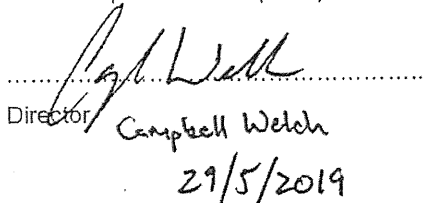 Director
Campbell Welch
29/5/2019